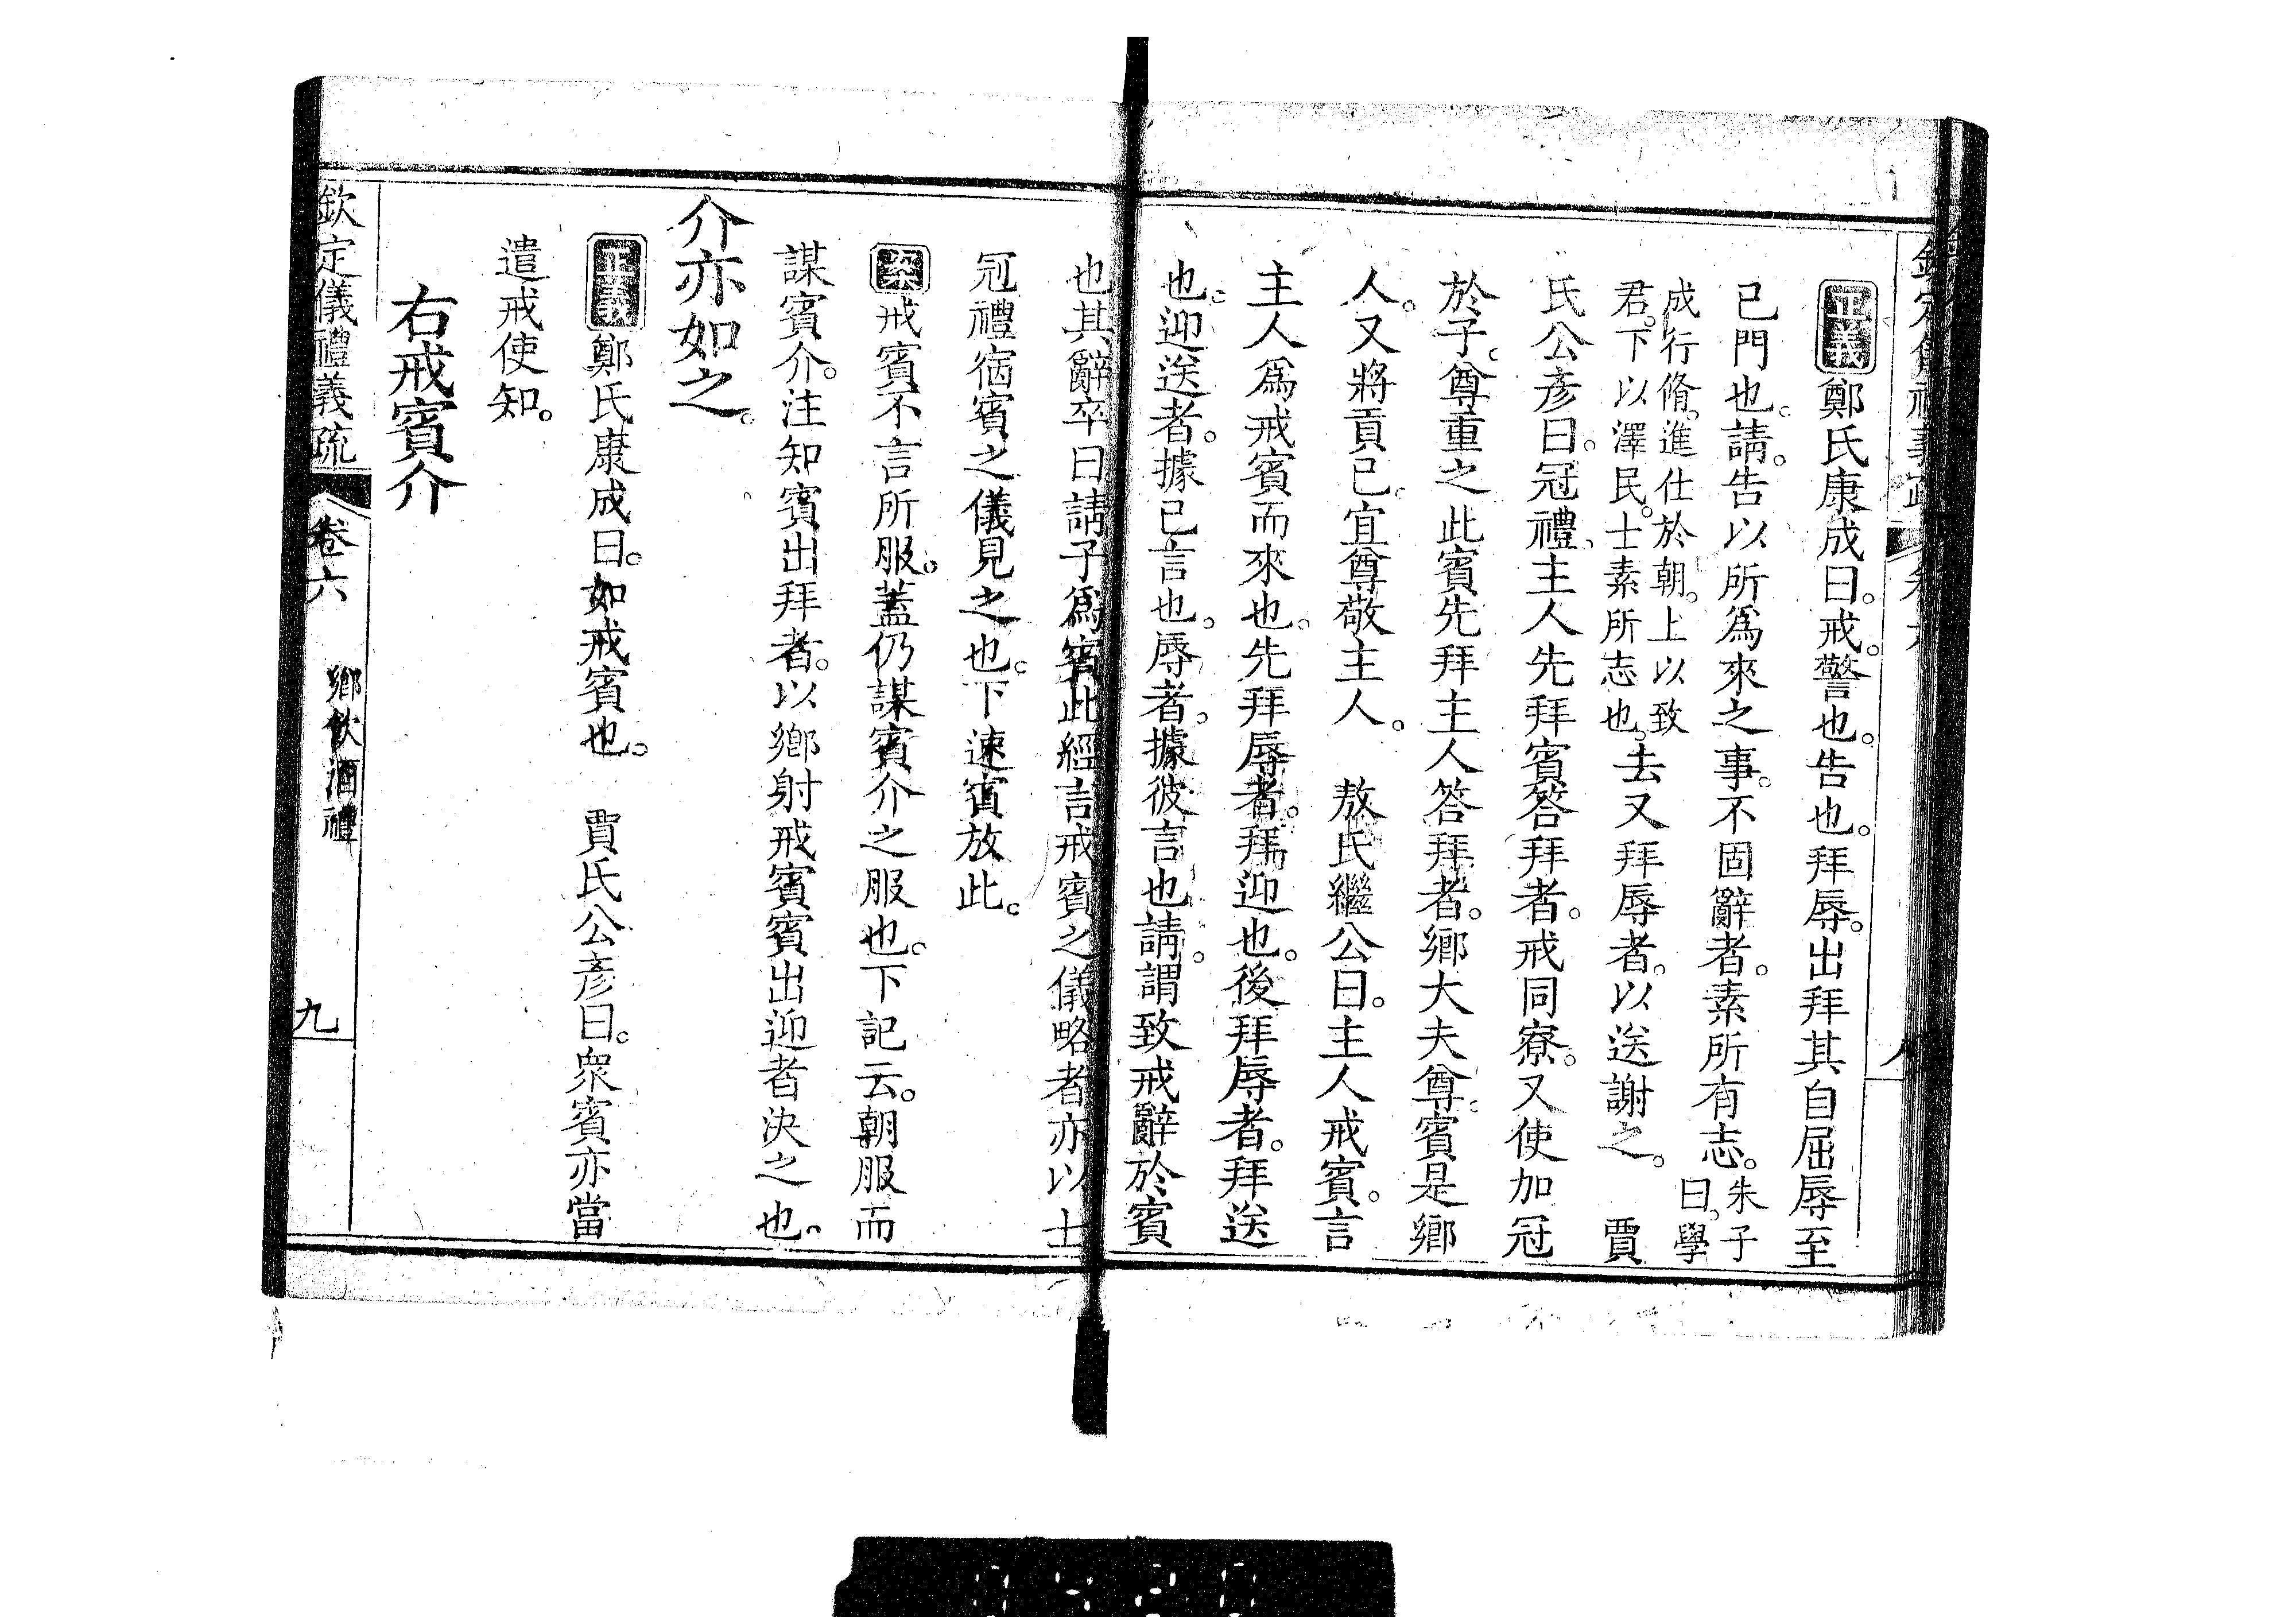 正義鄭氏康成曰。戒。警也。告也。拜辱。出拜其自屈辱至
已門也。請。告以所爲來之事。不固辭者。素所有志。朱子曰。學
成行脩。進仕於朝。上以致君。下以澤民。士素所志也。去又拜辱者。以送謝之。 賈
氏公彥曰。冠禮、主人先拜賓答拜者。戒同寮。又使加冠
於子。尊重之此賓先拜主人答拜者。鄉大夫尊。賓是鄉
人。又將貢已。宜尊敬主人。 敖氏繼公曰。主人戒賓。言
主人爲戒賓而來也。先拜辱者。拜迎也。後拜辱者。拜送
也。迎送者。據已言也。辱者。據彼言也。請。謂致戒辭於賓
也其辭卒曰請子爲賓此經言戒賓之儀略者亦以士
冠禮宿賓之儀見之也。下速賓放此。
案戒賓不言所服。蓋仍謀賓介之服也。下記云。朝服而
謀賓介。注知賓出拜者。以鄉射戒賓賓出迎者決之也。
介亦如之。
正義鄭氏康成曰。如戒賓也。 賈氏公彥曰。衆賓亦當
遣戒使知。
右戒賓介
欽定儀禮義疏 卷六 鄉飲酒禮 九